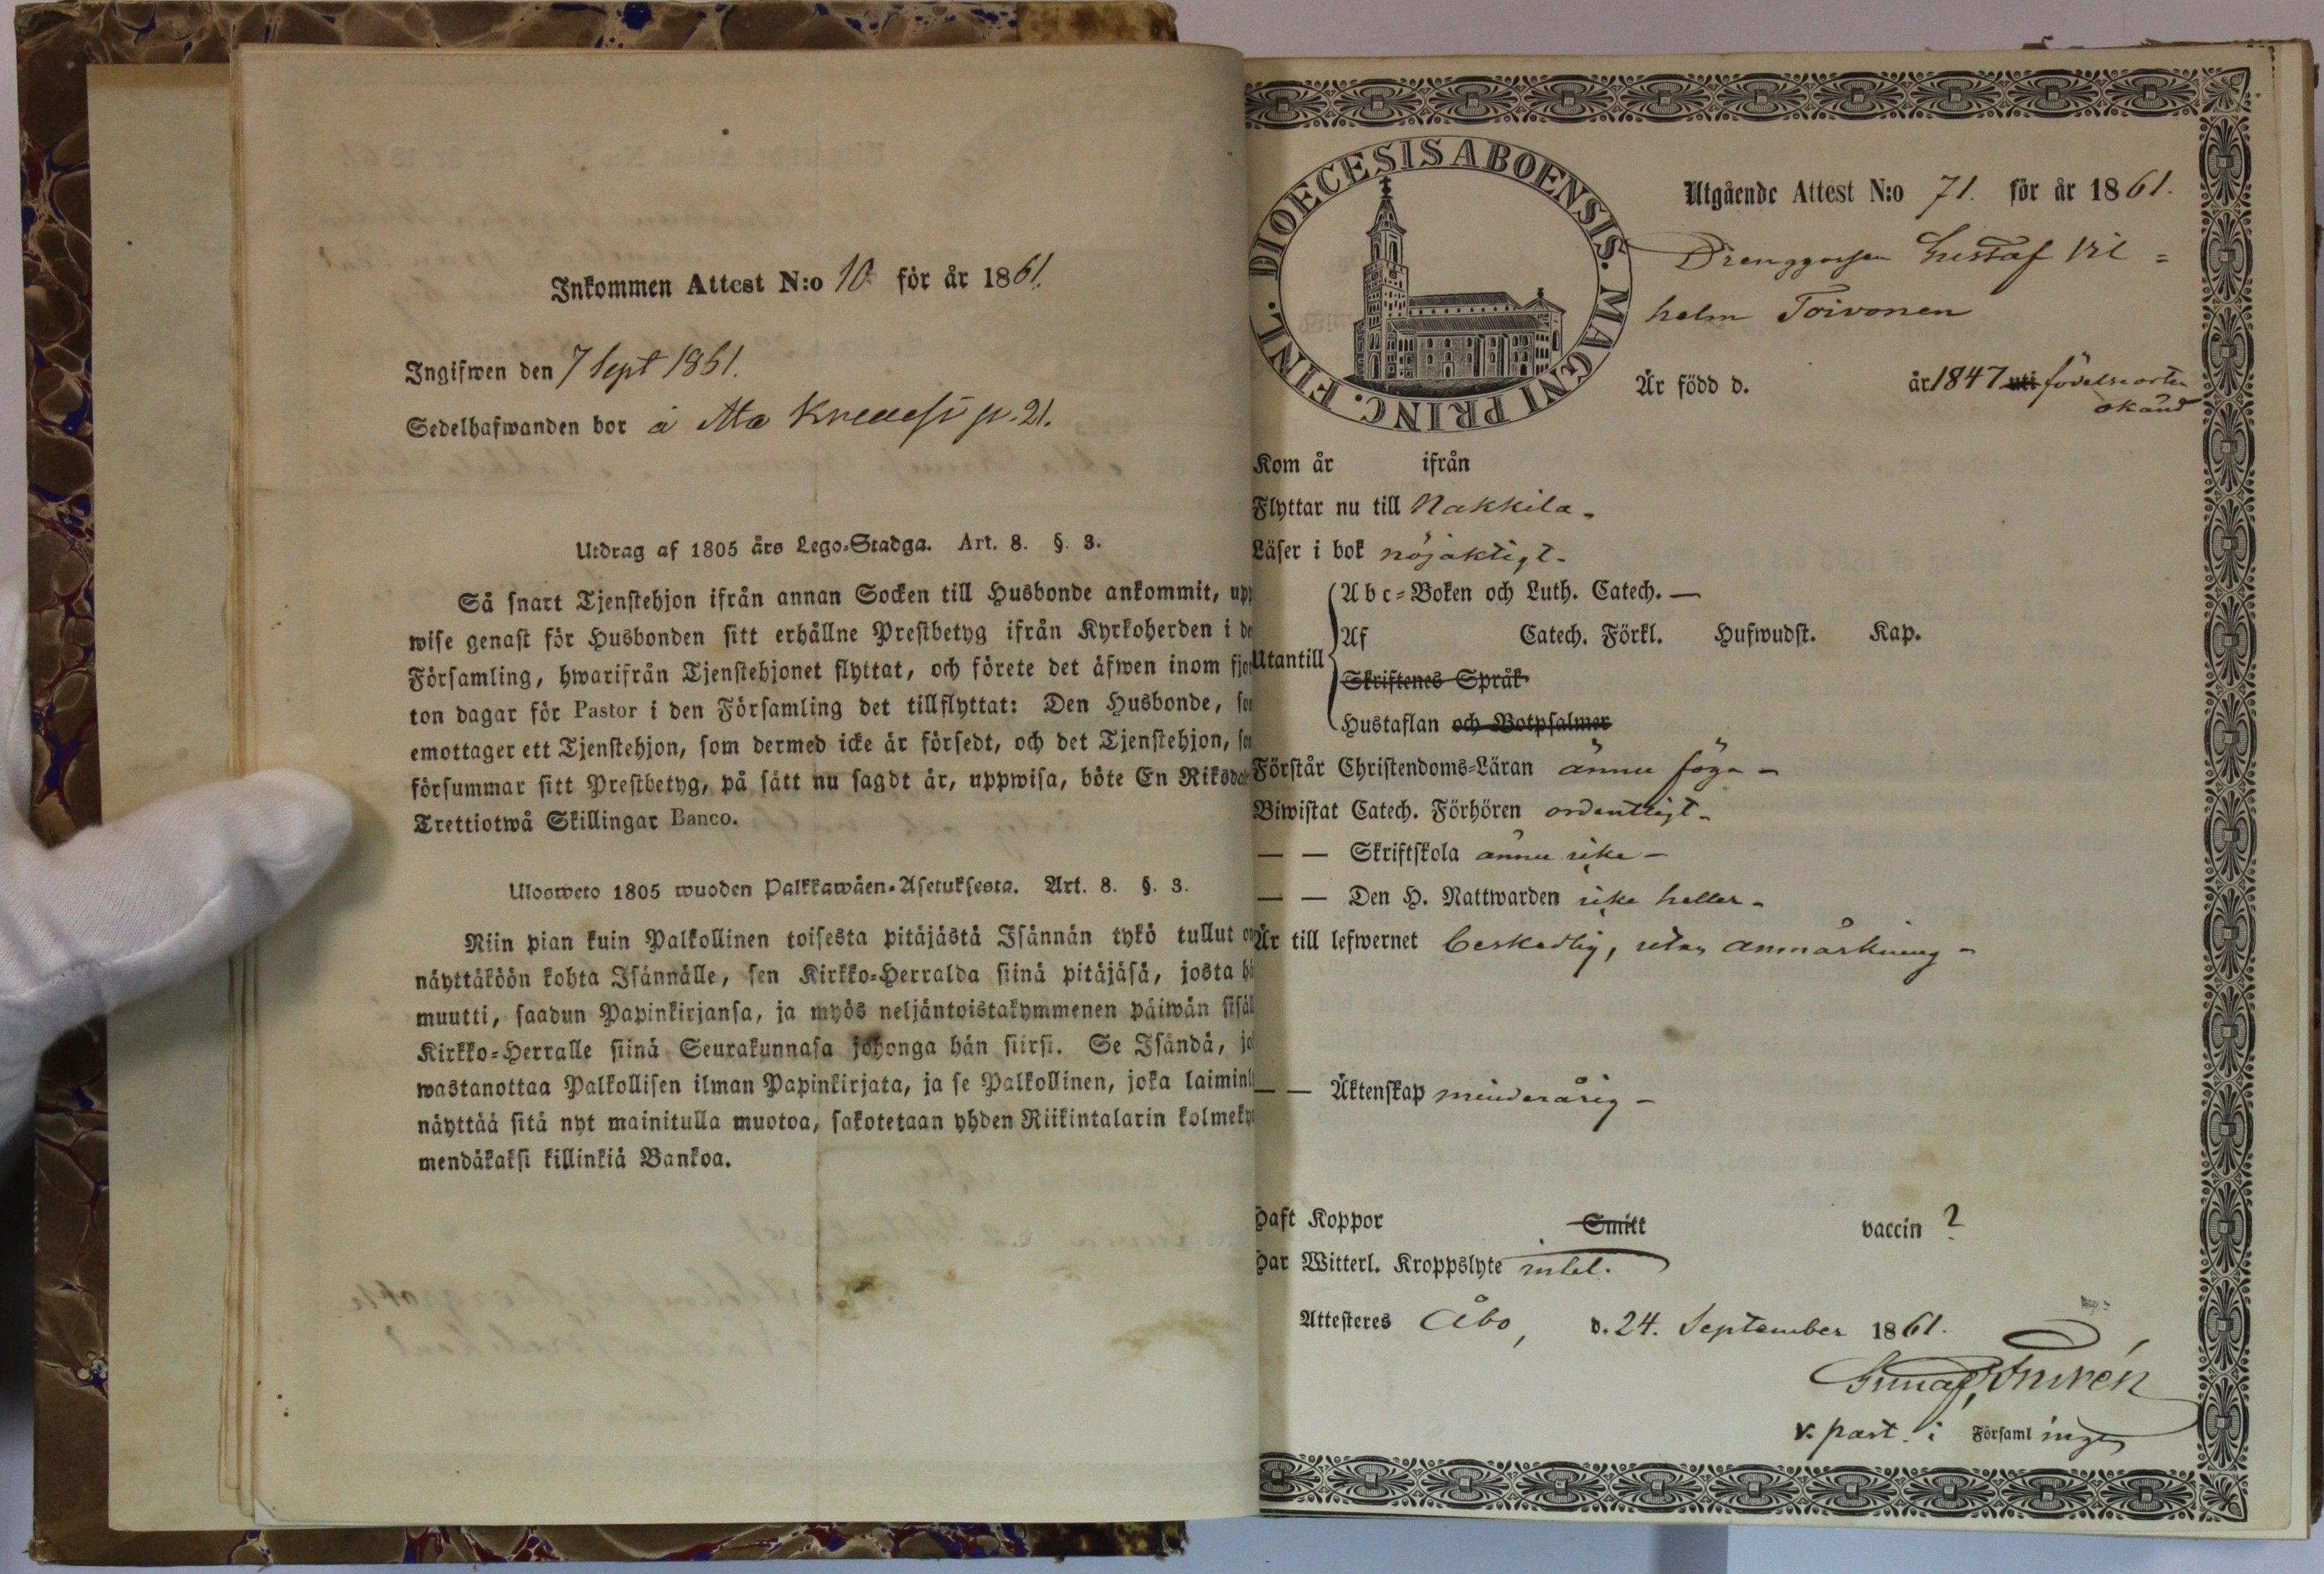 Inkommen Attest N:o 10 för år 1861.
Ingifwen den 7 Sept 1861.
Sedelhafwanden bor å p. 21.
Utdrag af 1805 års Lego-Stadga. Art. 8. §. 3.
Så snart Tjenstehjon ifrån annan Socken till Husbonde ankommit, upp
wise genast för Husbonden sitt erhållne Prestbetyg ifrån Kyrkoherden i de
Församling, hwarifrån Tjenstehjonet flyttat, och förete det äfwen inom fjor
ton dagar för Pastor i den Församling det tillflyttat: Den Husbonde, som
emottager ett Tjenstehjon, som dermed icke är försedt, och det Tjenstehjon, som
försummar sitt Prestbetyg, på sätt nu sagdt är, uppwisa, böte En Riksdal
Trettiotwå Skillingar Banco.
Ulosweto 1805 wuoden Palkkawäen-Asetuksesta. Art. 8. §. 3.
Niin pian kuin Palkollinen toisesta pitäjästä Isännän tykö tullut on
näyttäköön kohta Isännälle, sen Kirkko-Herralda siinä pitäjäsä, josta hä
muutti, saadun Papinkirjansa, ja myös neljäntoistakymmenen päiwän sisäl
Kirkko-Herralle siinä Seurakunnasa johonga hän siirsi. Se Isändä, jo
wastanottaa Palkollisen ilman Papinkirjata, ja se Palkollinen, joka laiminl
näyttää sitä nyt mainitulla muotoa, sakotetaan yhden Riikintalarin kolmeky
mendäkaksi killinkiä Bankoa.
DIOECESIS ABOENSIS. MAGNI PRINC. FINL.
Utgående Attest N:o 71. för år 1861.
Drenggossen Gustaf Vil=
helm Toivonen
Är född d. år 1847 uti födelseorten
okänd
Kom år ifrån
Flyttar nu till Nakkila.
Läser i bok nöjaktigt.
Abc-Boken och Luth. Catech. —
Utantill Af Catech. Förkl. Hufwudst. Kap.
Skriftenes Språk
Hustaflan och Botpsalmer
Förstår Christendoms-Läran ännu föga –
Biwistat Catech. Förhören ordentligt.
— — Skriftskola ännu icke –
— — Den H. Nattwarden icke heller.
Är till lefwernet beskedlig, utan anmärkning –
— — Äktenskap minderårig –
Haft Koppor Smitt vaccin ?
Har Witterl. Kroppslyte intet.
Attesteres Åbo, d. 24. September 1861.
v. past. i Församlingen